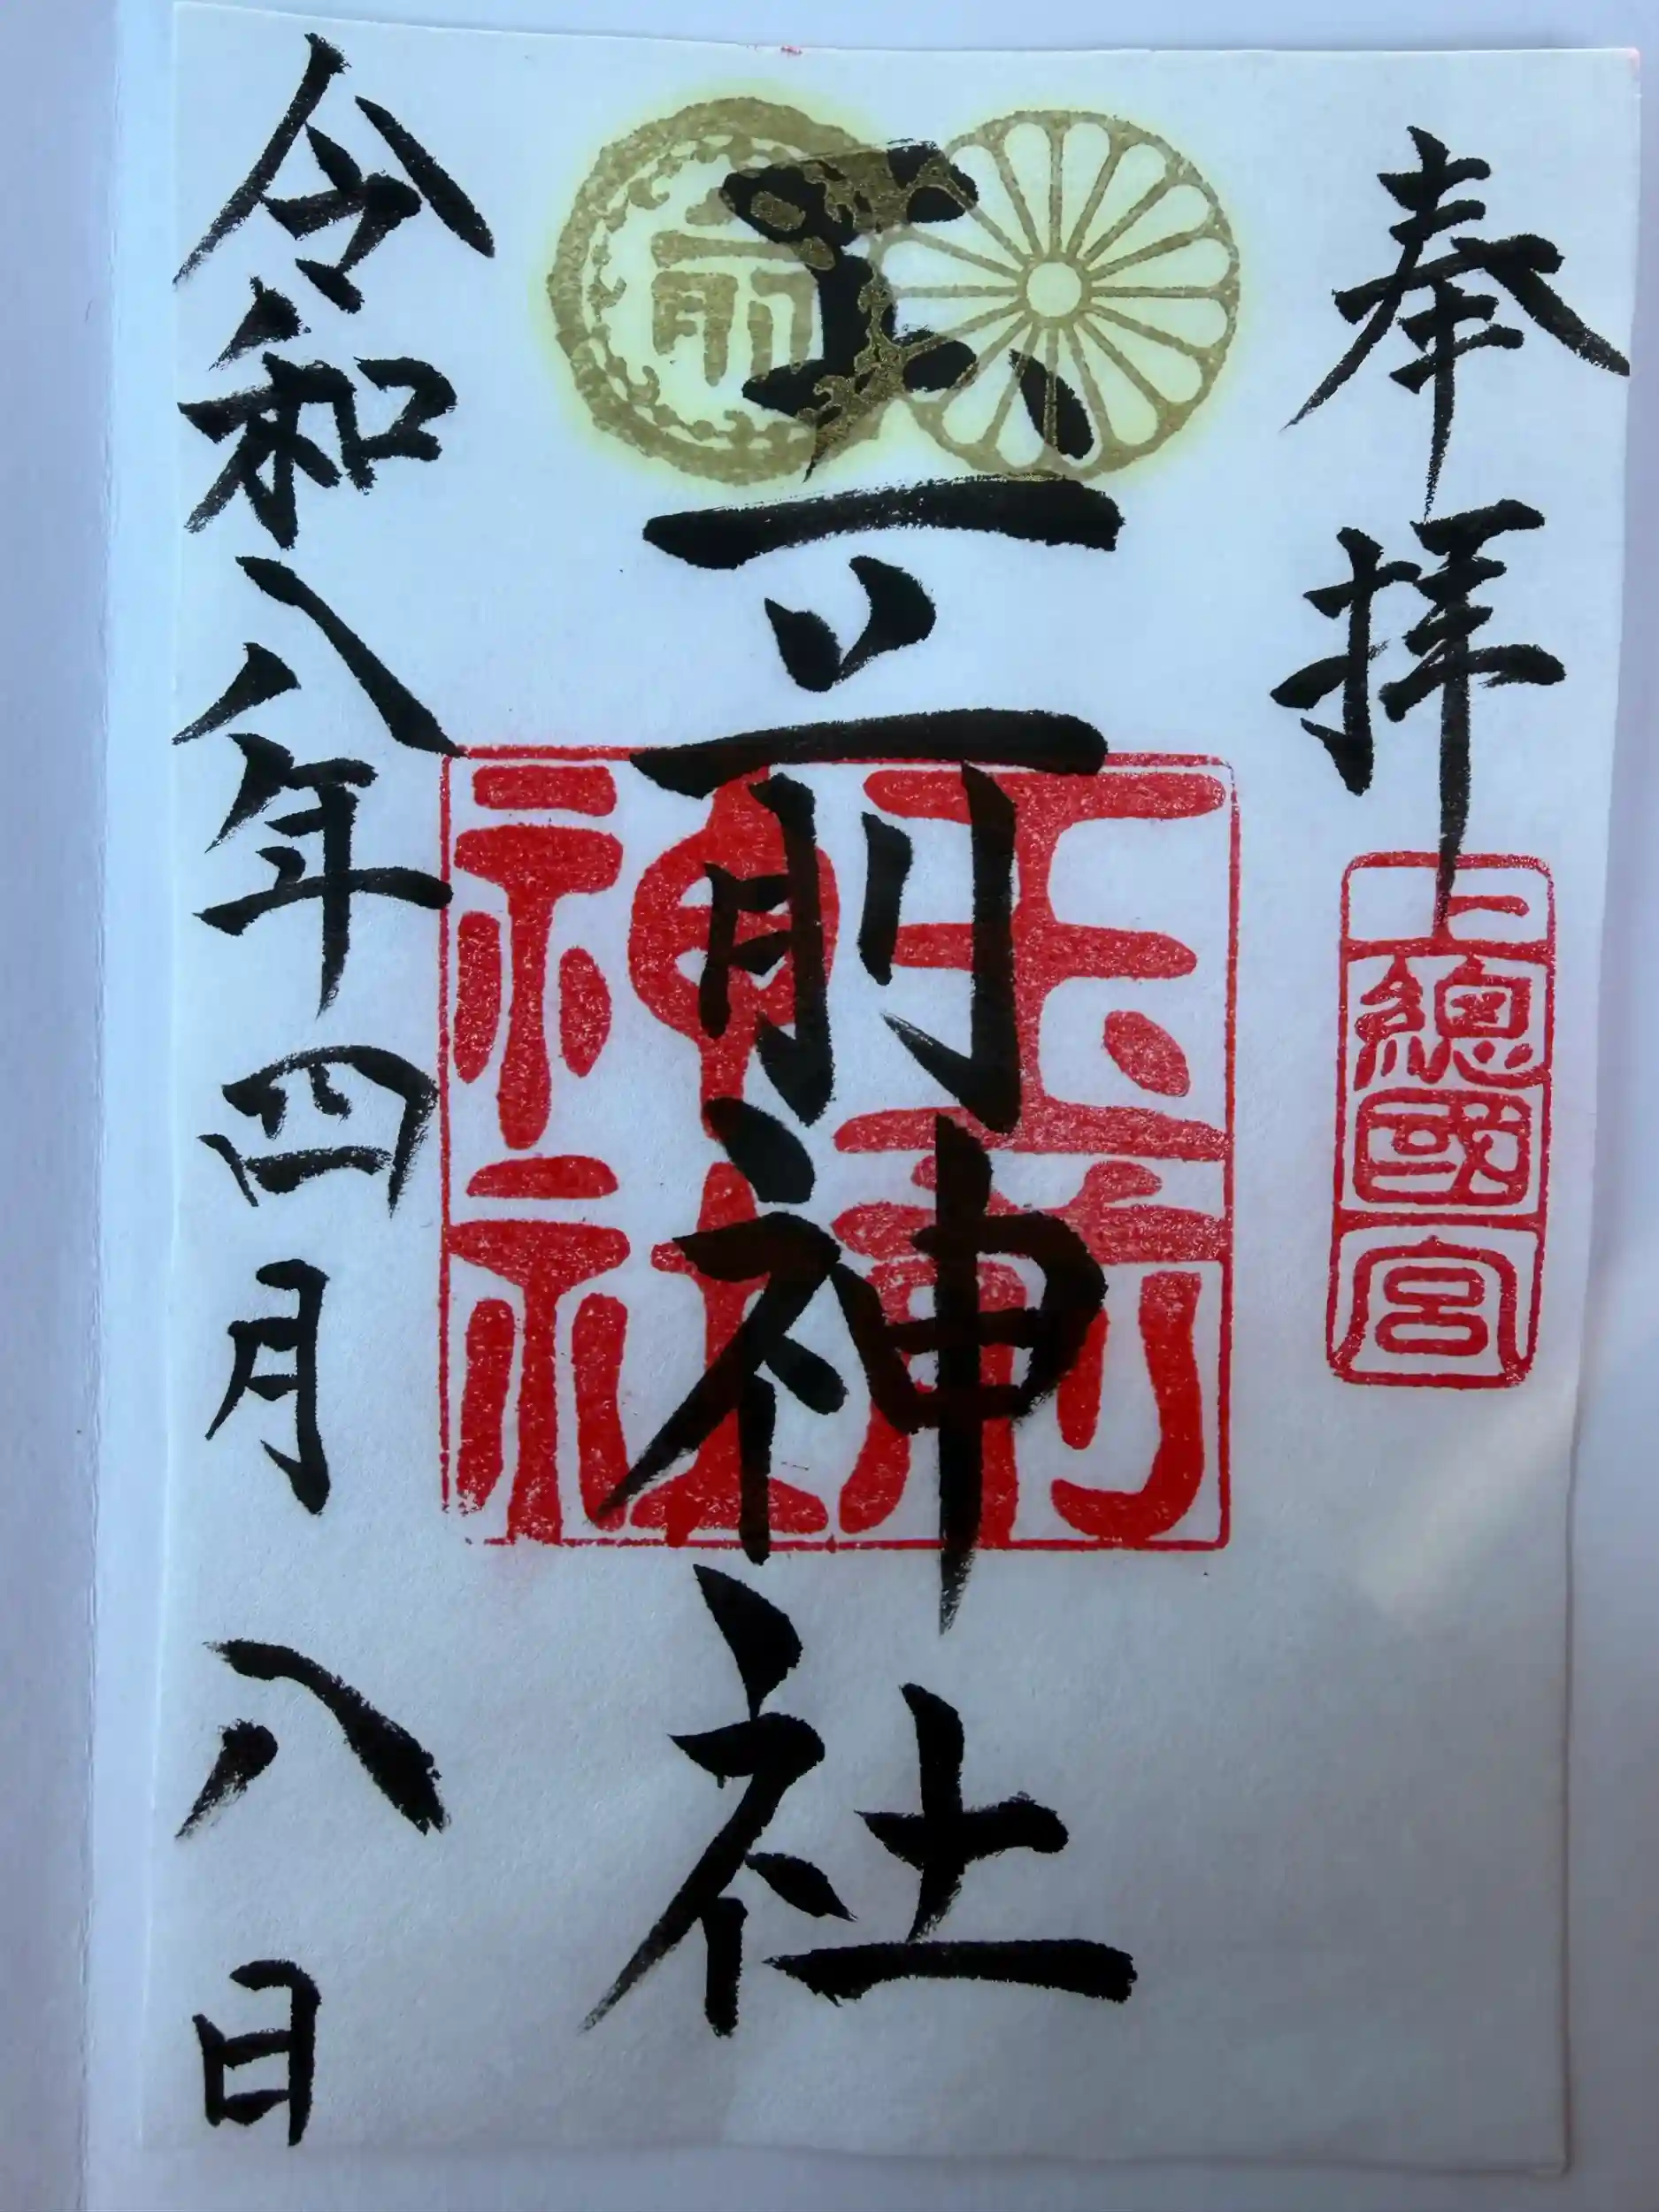 奉拝
上總國一宮
前
玉前神社
玉前
神社
令和八年四月八日